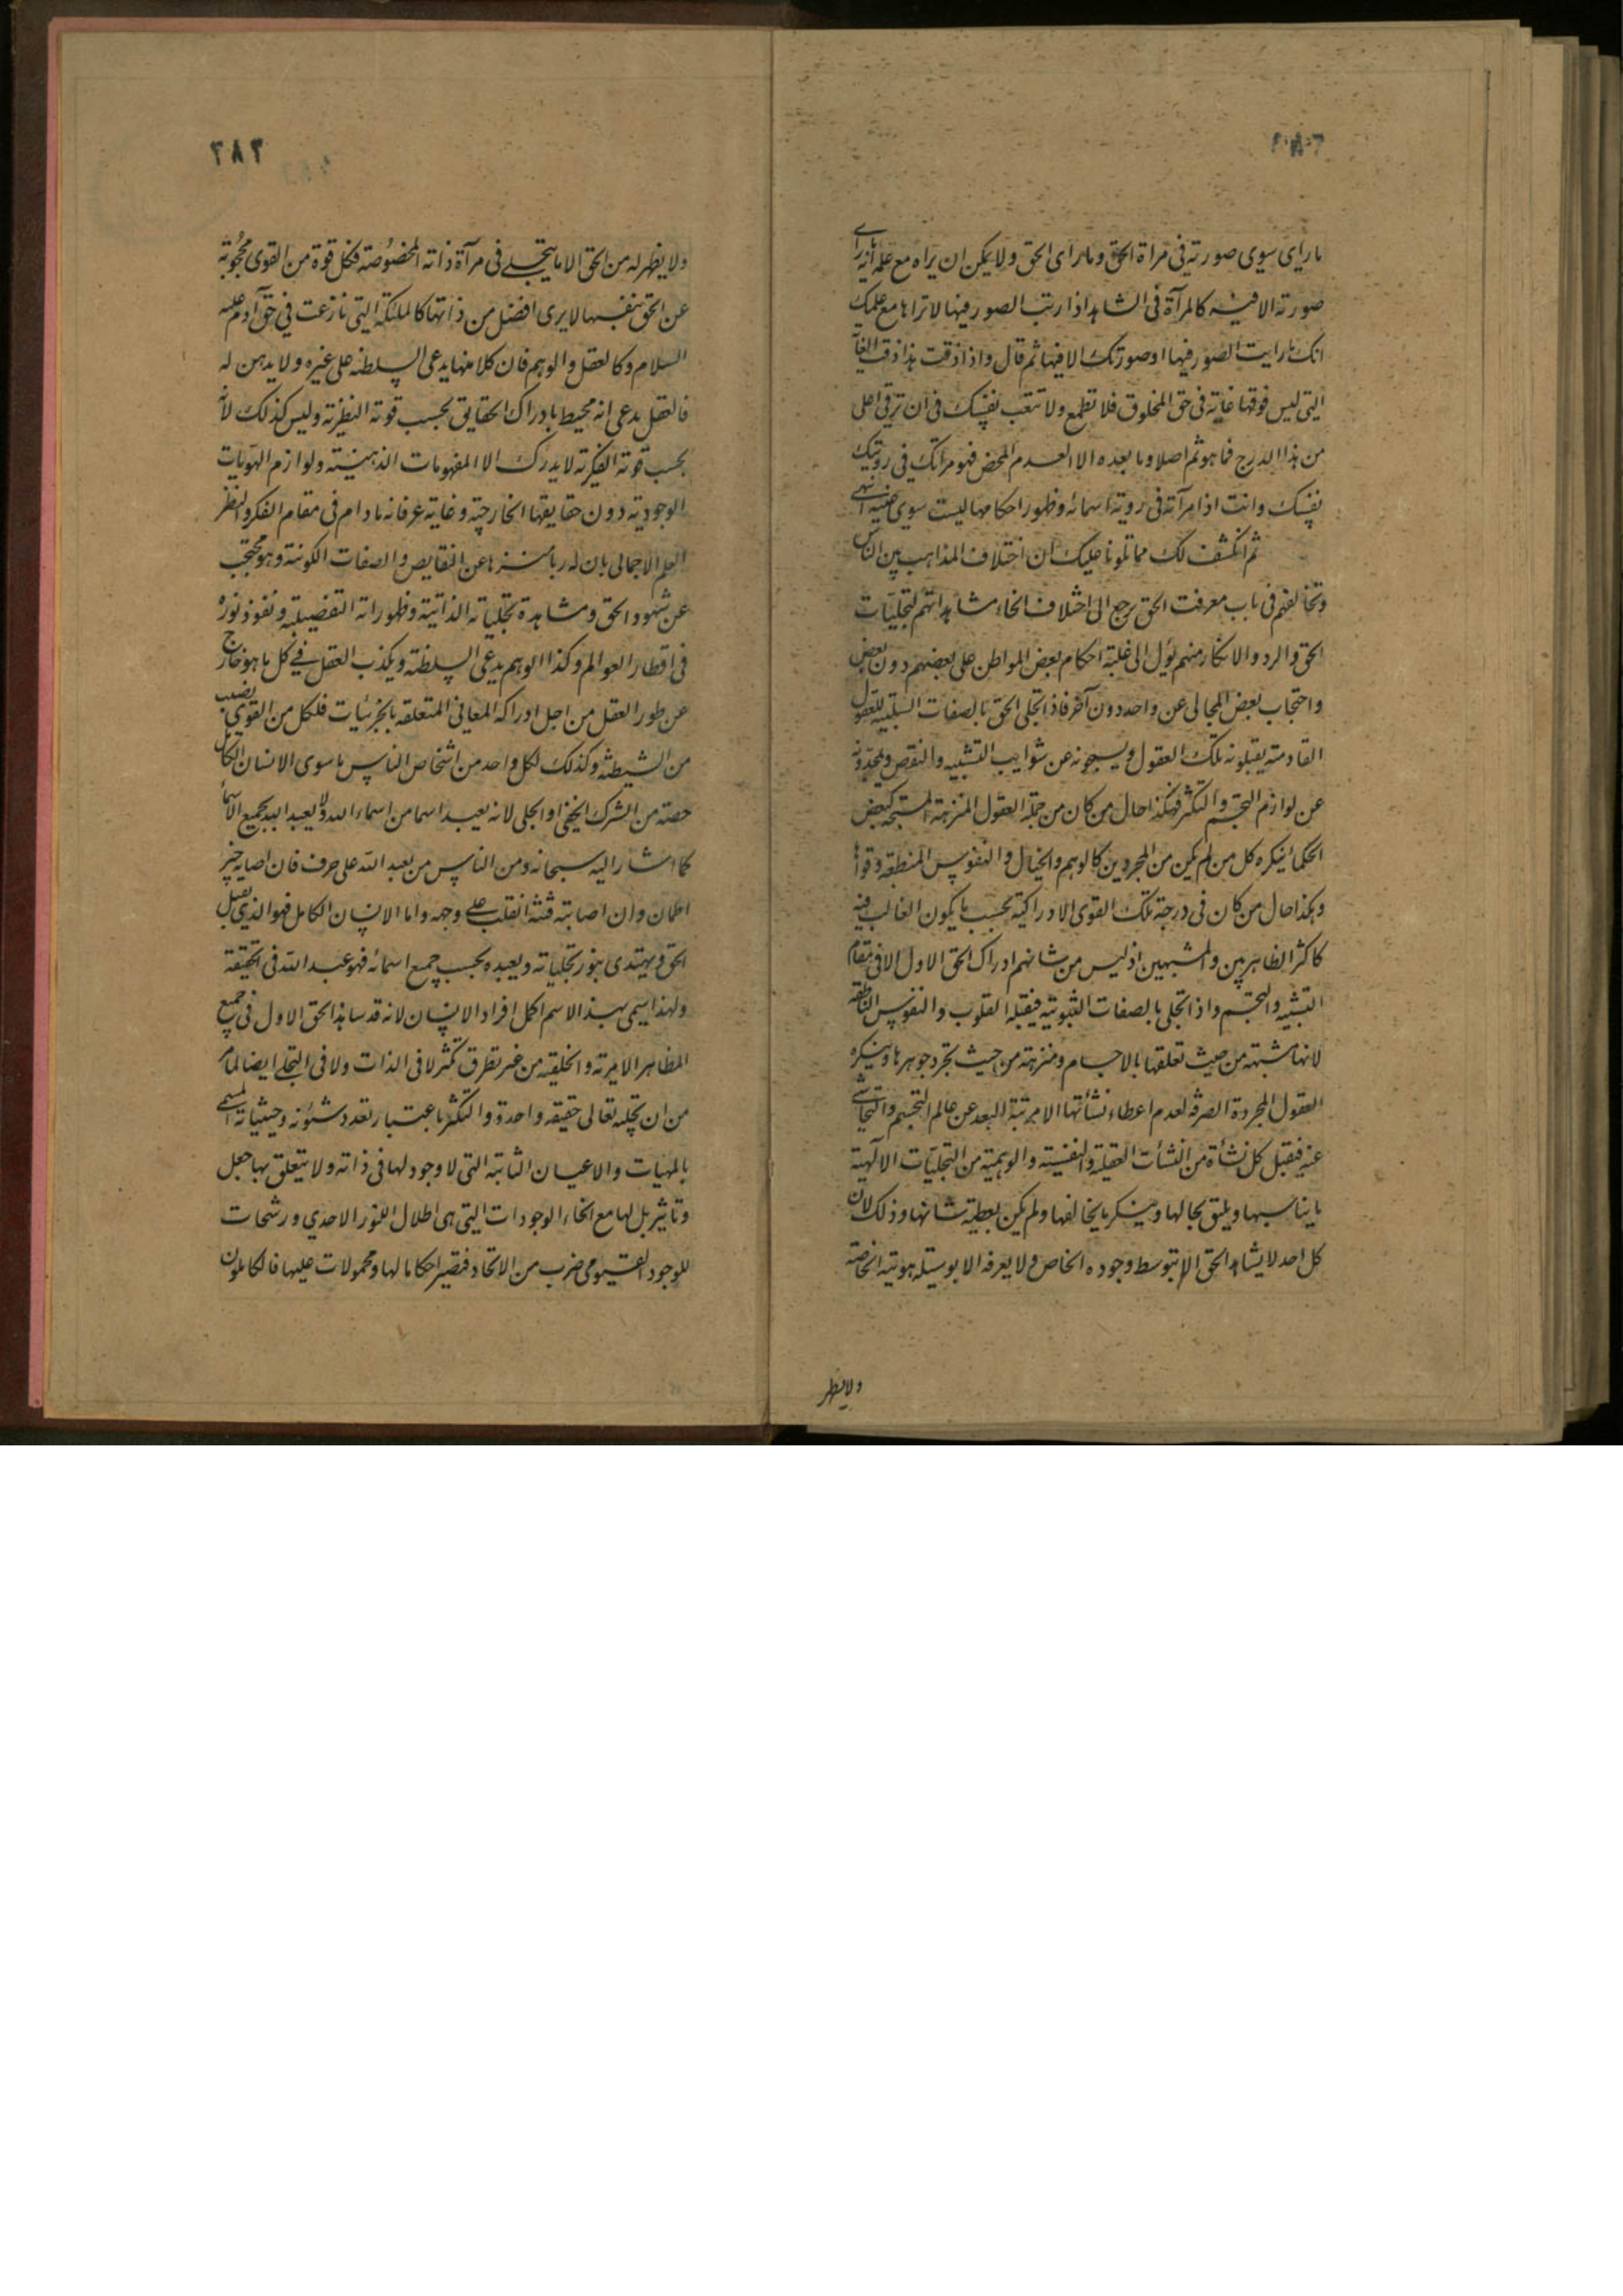 ما رای سوی صورته فی مراة الحق وما رای الحق ولا یمکن ان یراه مع علمه انه ما رای
صورته الا فیه کالمرآة فی الشاهد اذا ریت الصور فیها لا تراها مع علمک
انک ما رایت الصور فیها او صورتک الا فیها ثم قال واذا ذقت هذا ذقت الغایة
التی لیس فوقها غایة فی حق المخلوق فلا تطمع ولا تتعب نفسک فی ان ترقی اعلی
من هذا الدرج فما هو ثم اصلا وما بعده الا العدم المحض فهو مرآتک فی رویتک
نفسک وانت اذا مرآته فی رویة اسمائه وظهور احکامها لیست سوی عینه انتهی
ثم انکشف لک مما تلوناه علیک ان اختلاف المذاهب بین الناس
وتخالفهم فی باب معرفت الحق یرجع الی اختلاف انحاء مشاهداتهم لتجلیات
الحق والرد والانکار منهم یؤل الی غلبة احکام بعض المواطن علی بعضهم دون بعض
واحتجاب بعض المجالی عن واحد دون آخر فاذا تجلی الحق بالصفات السلبیه للعقول
القادسة یقبلونه تلک العقول ویسبحونه عن شوایب التشبیه والنقص ویمجدونه
عن لوازم التجسم والتکثر فهکذا حال من کان من جملة العقول المنزهة المسبحه کبعض
الحکماء ینکره کل من لم یکن من المجردین کالوهم والخیال والنفوس المنطبعه وقواها
وهکذا حال من کان فی درجة تلک القوی الادراکیة بحسب ما یکون الغالب فیه
کاکثر الظاهریین والمشبهین اذ لیس من شانهم ادراک الحق الاول الا فی مقام
التشبیه والتجسم واذا تجلی بالصفات الثبوتیة فیقبله القلوب والنفوس الناطقه
لانها مشبهة من حیث تعلقها بالاجسام ومنزهة من حیث تجرد جوهرها وینکره
العقول المجردة الصرفه لعدم اعطاء نشأتها الا مرتبة البعد عن عالم التجسیم والتحاشی
عنه فقبل کل نشأة من النشأت العقلیة والنفسیة والوهمیة من التجلیات الالهیة
ما یناسبها ویلیق بحالها وینکر ما یخالفها ولم یکن یعطیه شانها وذلک لان
کل احد لا یشاهد الحق الا بتوسط وجوده الخاص ولا یعرفه الا بوسیلة هویته الخاصة
ولا یظهر
۲۸۳
ولا یظهر له من الحق الا ما یتجلی فی مرآة ذاته المخصوصة فکل قوة من القوی محجوبة
عن الحق بنفسها لا یری افضل من ذاتها کالملئکة التی نازعت فی حق آدم علیه
السلام وکالعقل والوهم فان کلا منهما یدعی السلطنه علی غیره ولا یدهن له
فالعقل یدعی انه محیط بادراک الحقایق بحسب قوته النظریة ولیس کذلک لانه
بحسب قوته الفکریة لا یدرک الا المفهومات الذهنیة ولوازم الهویات
الوجودیة دون حقایقها الخارجیة وغایة عرفانه ما دام فی مقام الفکر والنظر
العلم الاجمالی بان له ربا منزها عن النقایص والصفات الکونیة وهو محتجب
عن شهود الحق ومشاهدة تجلیاته الذاتیة وظهوراته التفصیلیة ونفوذ نوره
فی اقطار العوالم وکذا الوهم یدعی السلطنة ویکذب العقل فی کل ما هو خارج
عن طور العقل من اجل ادراکه المعانی المتعلقه بالجزئیات فلکل من القوی نصیب
من الشیطنة وکذلک لکل واحد من اشخاص الناس ما سوی الانسان الکامل
حصته من الشرک الخفی او الجلی لانه یعبد اسما من اسماء الله ولا یعبد الله بجمیع الاسماء
کما اشار الیه سبحانه ومن الناس من یعبد الله علی حرف فان اصابه خیر
اطمان وان اصابته فتنة انقلب علی وجهه واما الانسان الکامل فهو الذی یقبل
الحق ویهتدی بنور تجلیاته ویعبده بحسب جمیع اسمائه فهو عبد الله فی الحقیقة
ولهذا یسمی بهذا الاسم اکمل افراد الانسان لانه قد شاهد الحق الاول فی جمیع
المظاهر الامریة والخلقیه من غیر تطرق تکثر لا فی الذات ولا فی التجلی ایضا لما مر
من ان تجلیه تعالی حقیقه واحدة والتکثر باعتبار تعدد شئونه وحیثیاته المسمی
بالمهیات والاعیان الثابتة التی لا وجود لها فی ذاته ولا یتعلق بها جعل
وتاثیر بل لها مع انحاء الوجودات التی هی اظلال للنور الاحدی ورشحات
للوجود القیومی ضرب من الاتحاد فتصیر احکاما لها ومحمولات علیها فالکاملون